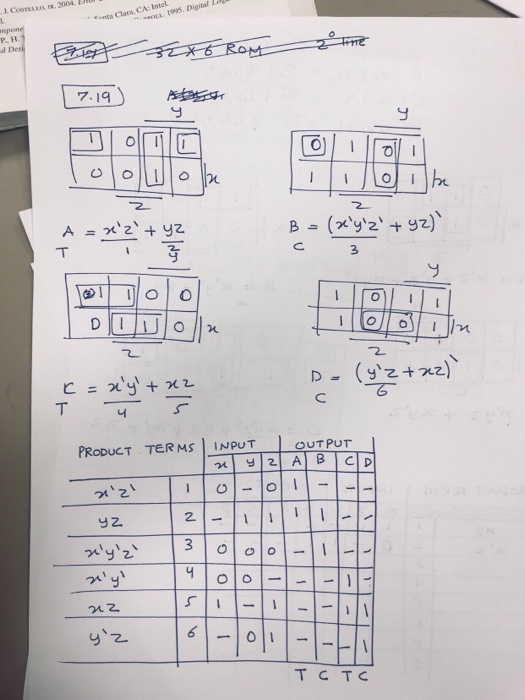 J. COSTELLO, JR. 2004.
Santa Clara, CA: Intel.
1995. Digital
P., H.
d Desi
32 X 6 ROM 2⁰ line
7.19
y y
1 0 1 1 0 1 0 1
0 0 1 0 x 1 1 0 1 x
z z
A = x'z' + yz B = (x'y'z' + yz)'
T 1 2 C 3
y y
1 1 0 0 1 0 1 1
0 1 1 0 x 1 0 0 1 x
z z
C = x'y' + xz D = (y'z + xz)'
T 4 5 C 6
PRODUCT TERMS INPUT OUTPUT
x y z A B C D
x'z' 1 0 - 0 1 - - -
yz 2 - 1 1 1 1 - -
x'y'z' 3 0 0 0 - 1 - -
x'y' 4 0 0 - - - 1 -
xz 5 1 - 1 - - 1 1
y'z 6 - 0 1 - - - 1
T C T C